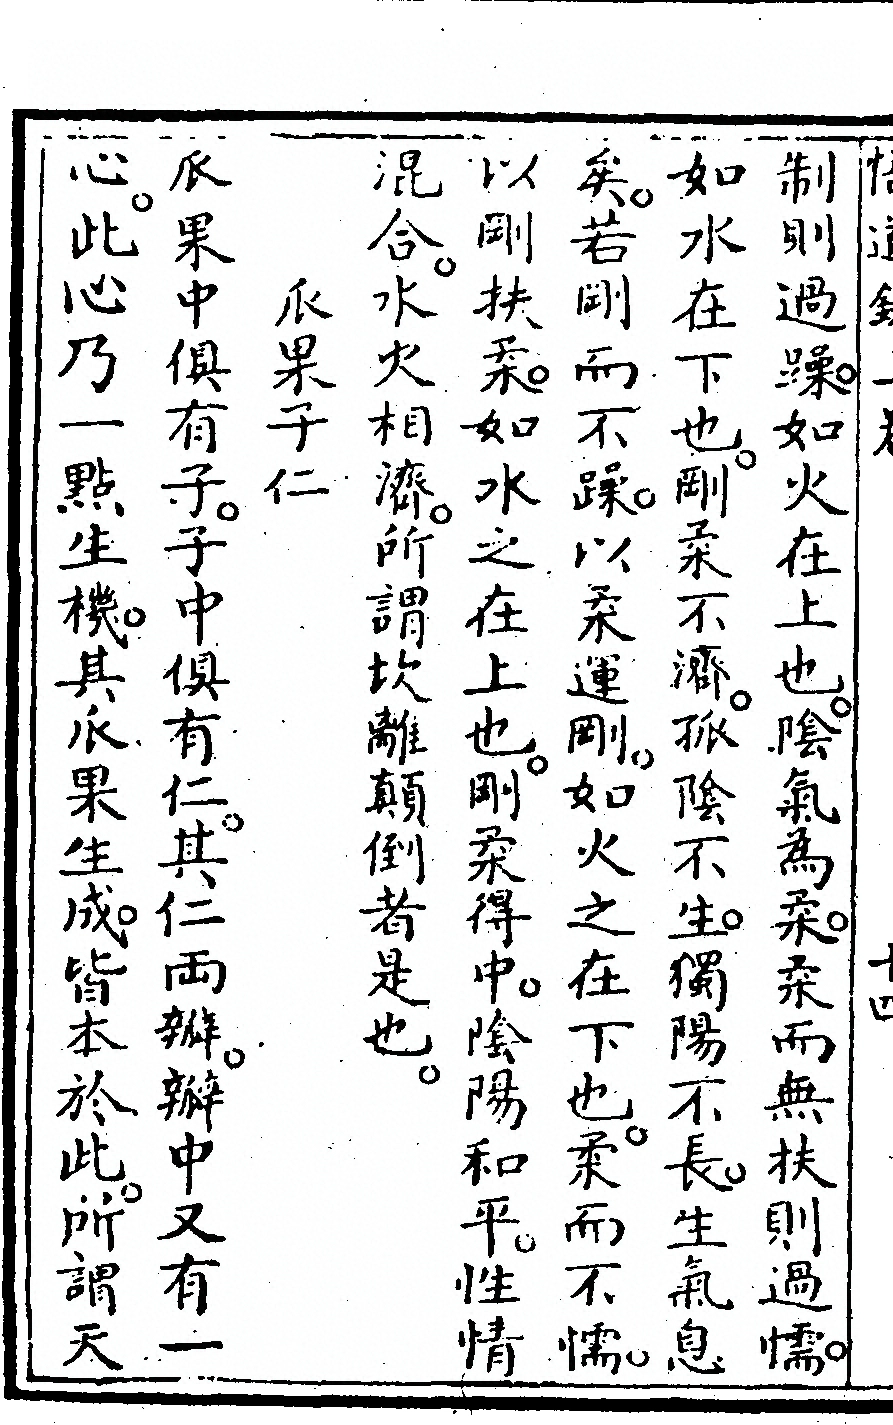 悟道錄上卷 十四
制則過躁。如火在上也。陰氣為柔。柔而無扶則過懦。
如水在下也。剛柔不濟。孤陰不生。獨陽不長。生氣息
矣。若剛而不躁。以柔運剛。如火之在下也。柔而不懦。
以剛扶柔。如水之在上也。剛柔得中。陰陽和平。性情
混合。水火相濟。所謂坎離顛倒者是也。
瓜果子仁
瓜果中俱有子。子中俱有仁。其仁両瓣。瓣中又有一
心。此心乃一點生機。其瓜果生成。皆本於此。所謂天